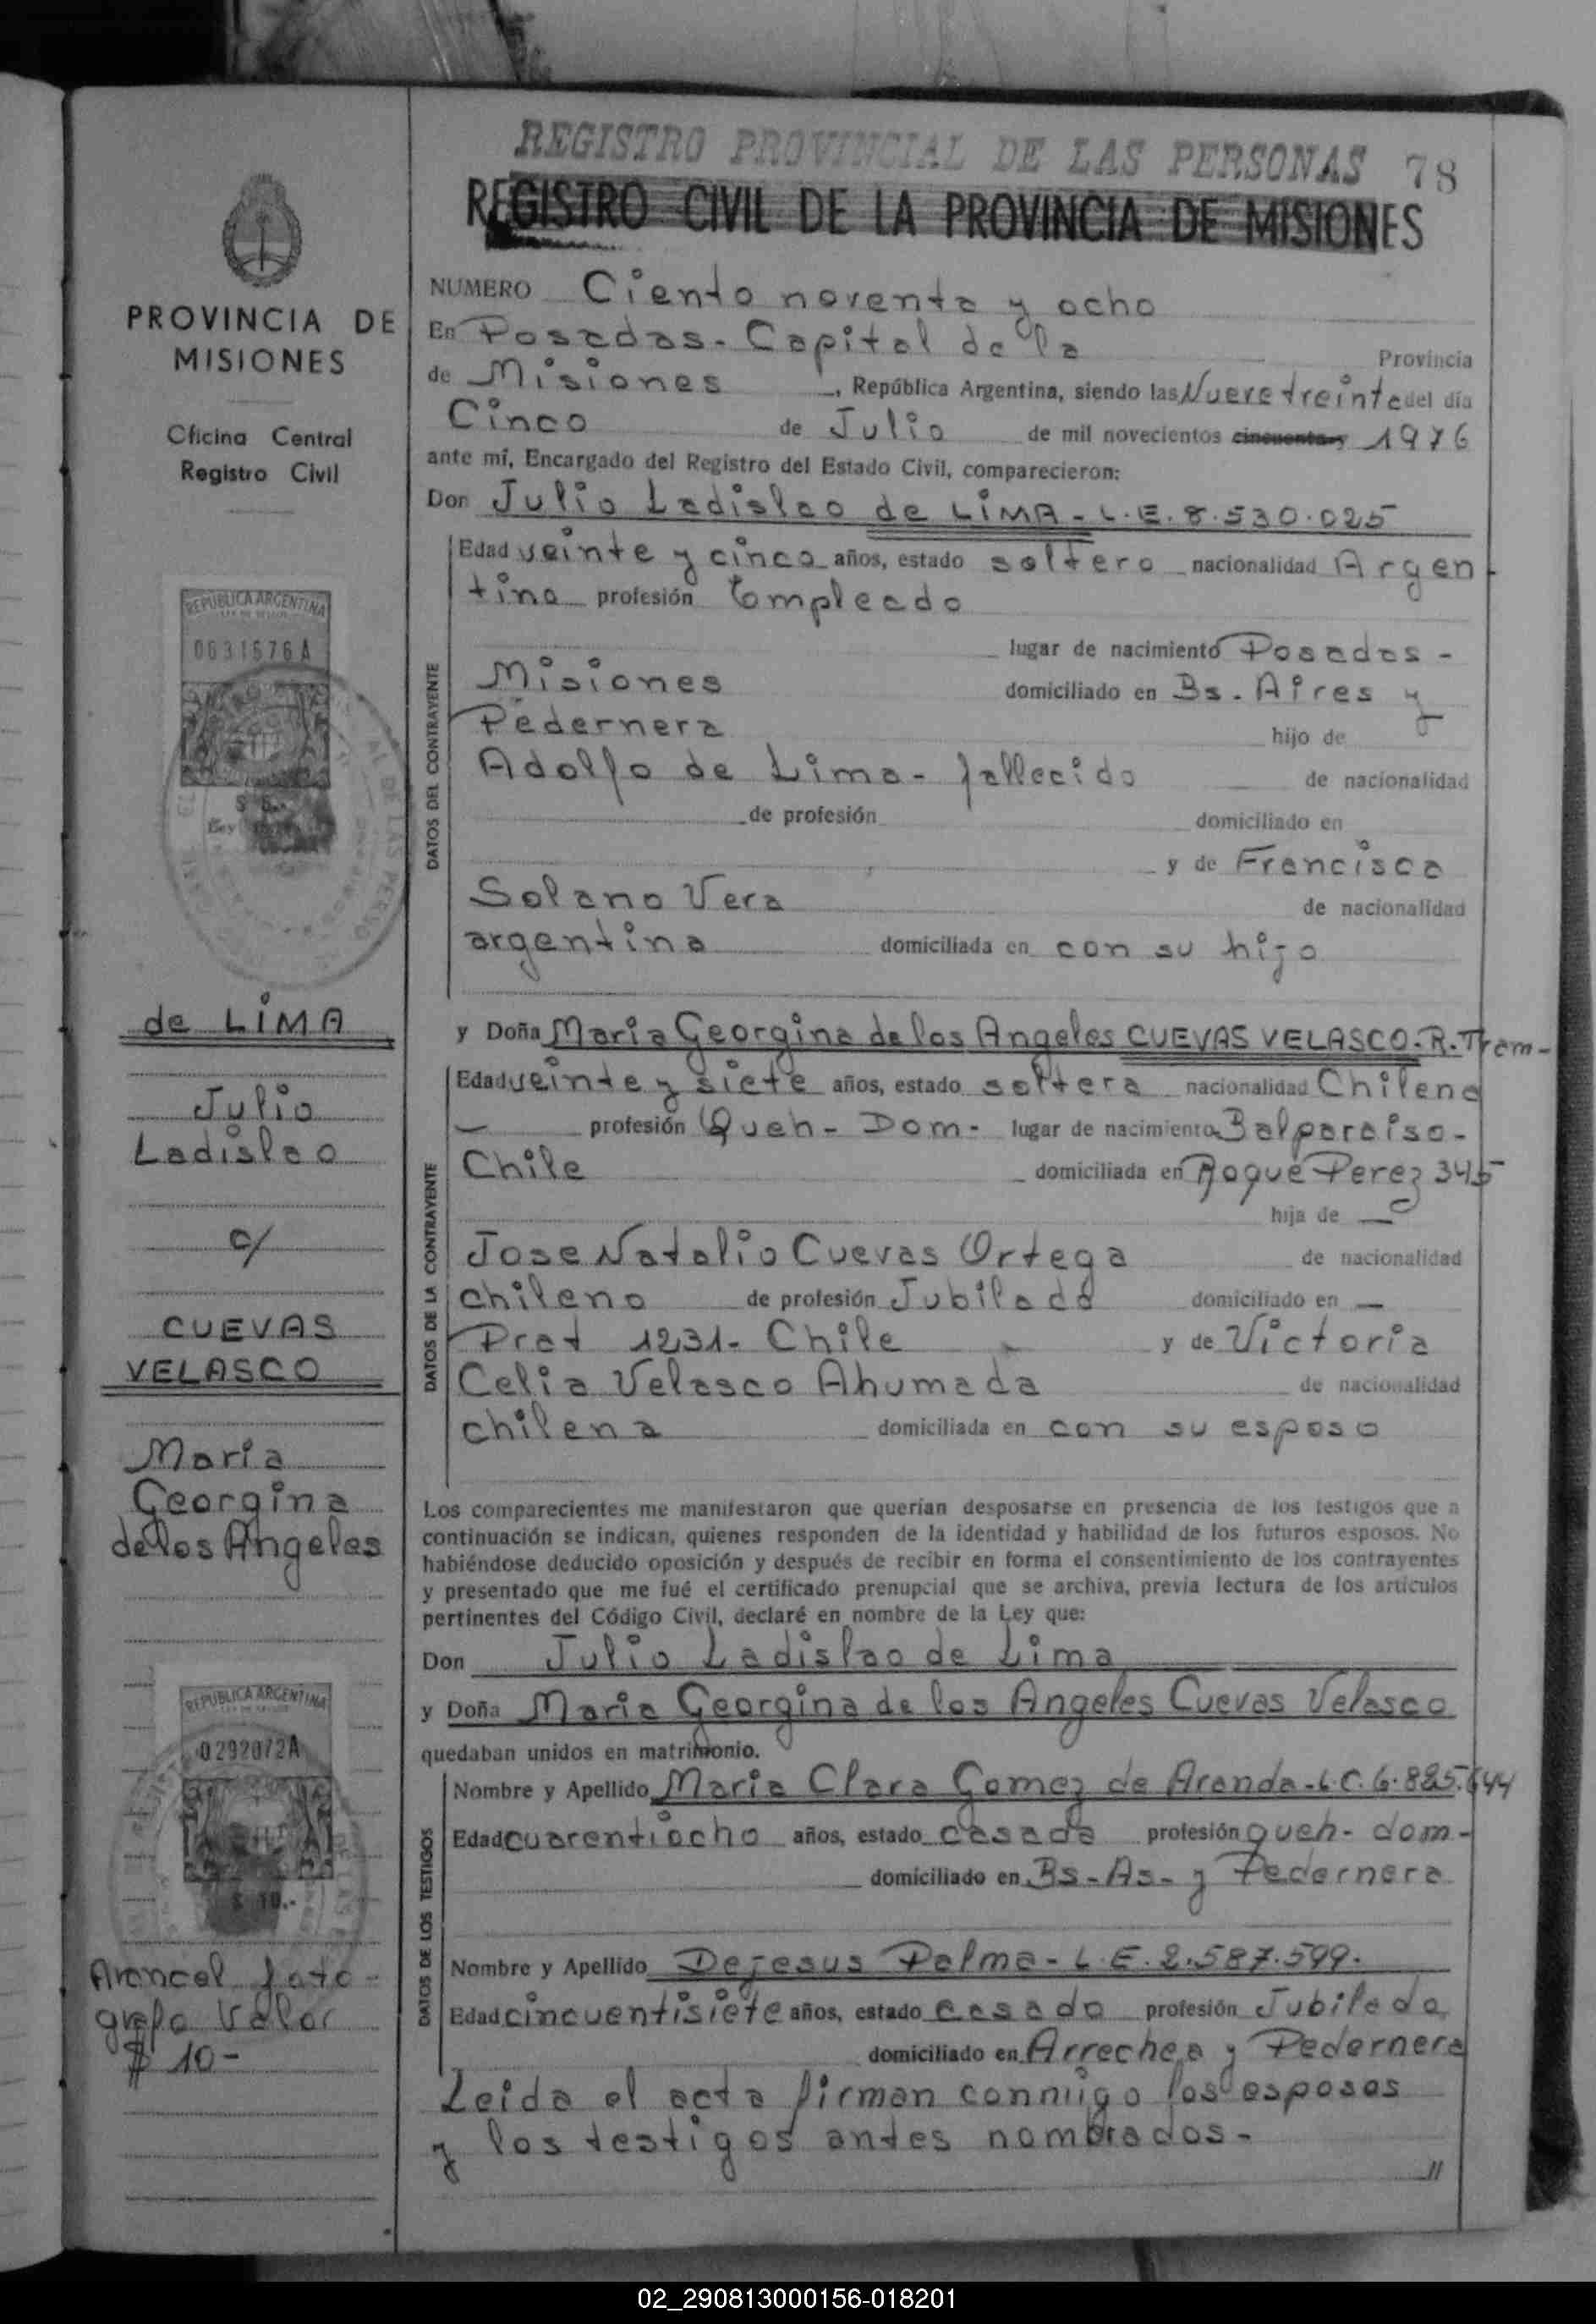 REGISTRO PROVINCIAL DE LAS PERSONAS 78
REGISTRO CIVIL DE LA PROVINCIA DE MISIONES
PROVINCIA DE
MISIONES
Oficina Central
Registro Civil
REPUBLICA ARGENTINA
0631676A
$ 5.-
Ley
de LIMA
Julio
Ladislao
c/
CUEVAS
VELASCO
Maria
Georgina
de los Angeles
REPUBLICA ARGENTINA
0292072A
$ 10.-
Arancel foto-
grafo Valor
$ 10-
NUMERO Ciento noventa y ocho
En Posadas - Capital de la Provincia
de Misiones, República Argentina, siendo las Nueve treinta del día
Cinco de Julio de mil novecientos cincuenta y 1976
ante mí, Encargado del Registro del Estado Civil, comparecieron:
Don Julio Ladislao de LIMA - L.E. 8.530.025
DATOS DEL CONTRAYENTE
Edad veinte y cinco años, estado soltero nacionalidad Argen-
tino profesión Empleado
lugar de nacimiento Posadas -
Misiones domiciliado en Bs. Aires y
Pedernera hijo de
Adolfo de Lima - fallecido de nacionalidad
de profesión domiciliado en
y de Francisca
Solano Vera de nacionalidad
argentina domiciliada en con su hijo
y Doña Maria Georgina de los Angeles CUEVAS VELASCO - R. Tram-
DATOS DE LA CONTRAYENTE
Edad veinte y siete años, estado soltera nacionalidad Chilena
— profesión Queh - Dom - lugar de nacimiento Balparaiso -
Chile domiciliada en Roque Perez 345
hija de —
Jose Natalio Cuevas Ortega de nacionalidad
chileno de profesión Jubilado domiciliado en —
Prat 1231 - Chile y de Victoria
Celia Velasco Ahumada de nacionalidad
chilena domiciliada en con su esposo
Los comparecientes me manifestaron que querían desposarse en presencia de los testigos que a
continuación se indican, quienes responden de la identidad y habilidad de los futuros esposos. No
habiéndose deducido oposición y después de recibir en forma el consentimiento de los contrayentes
y presentado que me fué el certificado prenupcial que se archiva, previa lectura de los artículos
pertinentes del Código Civil, declaré en nombre de la Ley que:
Don Julio Ladislao de Lima
y Doña Maria Georgina de los Angeles Cuevas Velasco
quedaban unidos en matrimonio.
DATOS DE LOS TESTIGOS
Nombre y Apellido Maria Clara Gomez de Aranda - L.C. 6.885.644
Edad cuarentiocho años, estado casada profesión queh - dom -
domiciliado en Bs - As - y Pedernera
Nombre y Apellido Dejesus Palma - L.E. 2.587.599.
Edad cincuentisiete años, estado casado profesión Jubilado
domiciliado en Arrechea y Pedernera
Leida el acta firman conmigo los esposos
y los testigos antes nombrados -
//
02_290813000156-018201